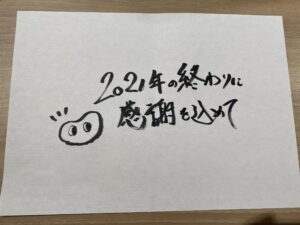 2021年の終わりに
感謝を込めて